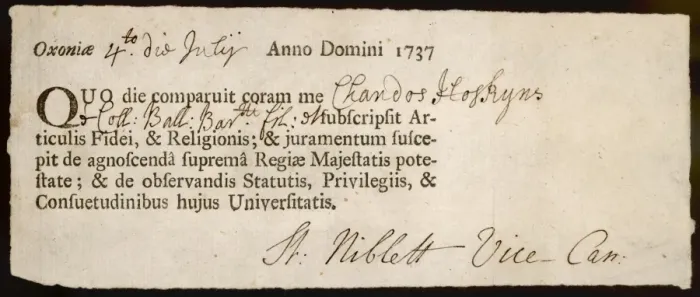 Oxoniæ 4.to die Julij Anno Domini 1737
QUO die comparuit coram me Chandos Hoskyns
è Coll: Ball: Bar.tti fil: & ſubſcripſit Ar-
ticulis Fidei, & Religionis; & juramentum ſuſce-
pit de agnoſcendâ ſupremâ Regiæ Majeſtatis pote-
ſtate; & de obſervandis Statutis, Privilegiis, &
Conſuetudinibus hujus Univerſitatis.
St: Niblett Vice-Can: